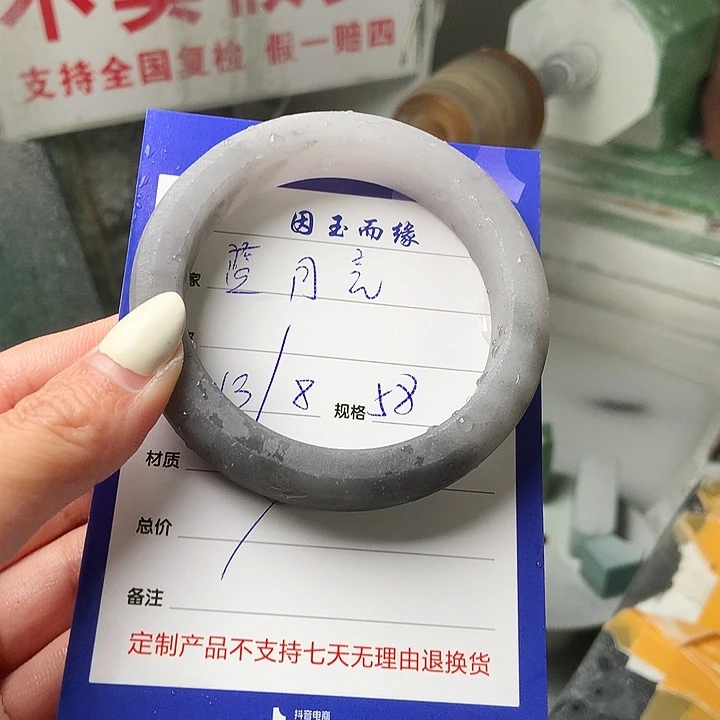 支持全国复检 假一赔四
因玉而缘
家 蓝月亮
13/8 规格 58
材质
总价
备注
定制产品不支持七天无理由退换货
抖音电商